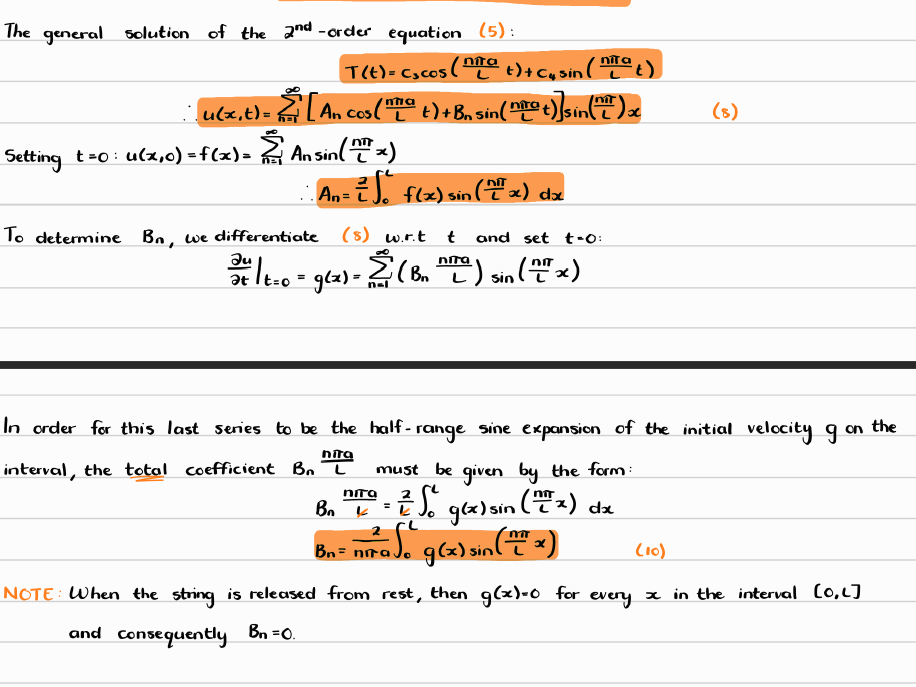 The general solution of the 2nd-order equation (5):
T(t) = c₃cos(nπa/L t) + c₄sin(nπa/L t)
∴ u(x,t) = ∞∑n=1 [An cos(nπa/L t) + Bn sin(nπa/L t)] sin(nπ/L) x (8)
Setting t=0 : u(x,0) = f(x) = ∞∑n=1 An sin(nπ/L x)
∴ An = 2/L ∫₀ᴸ f(x) sin(nπ/L x) dx
To determine Bn, we differentiate (8) w.r.t t and set t=0:
∂u/∂t |t=0 = g(x) = ∞∑n=1 (Bn nπa/L) sin(nπ/L x)
In order for this last series to be the half-range sine expansion of the initial velocity g on the
interval, the total coefficient Bn nπa/L must be given by the form:
Bn nπa/L = 2/L ∫₀ᴸ g(x) sin(nπ/L x) dx
Bn = 2/nπa ∫₀ᴸ g(x) sin(nπ/L x) (10)
NOTE: When the string is released from rest, then g(x)=0 for every x in the interval [0,L]
and consequently Bn=0.